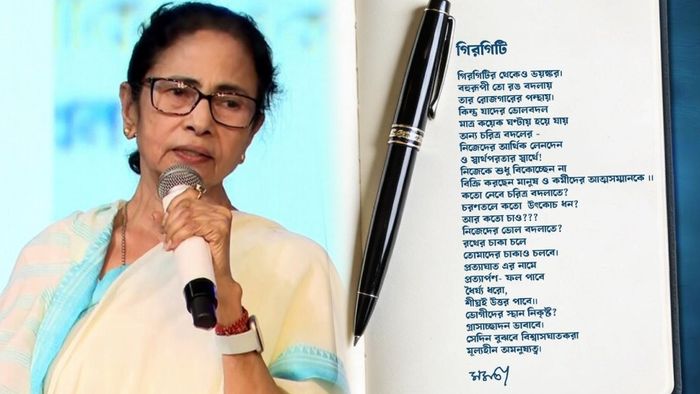 গিরগিটি
গিরগিটির থেকেও ভয়ঙ্কর।
বহুরূপী তো রঙ বদলায়
তার রোজগারের পন্থায়।
কিন্তু যাদের ভোলবদল
মাত্র কয়েক ঘণ্টায় হয়ে যায়
অন্য চরিত্র বদলের -
নিজেদের আর্থিক লেনদেন
ও স্বার্থপরতার স্বার্থে!
নিজেকে শুধু বিকোচ্ছেন না
বিক্রি করছেন মানুষ ও কর্মীদের আত্মসম্মানকে ।।
কতো নেবে চরিত্র বদলাতে?
চরণতলে কতো উৎকোচ ধন?
আর কতো চাও???
নিজেদের ভোল বদলাতে?
রথের চাকা চলে
তোমাদের চাকাও চলবে।
প্রত্যাঘাত এর নামে
প্রত্যার্পণ- ফল পাবে
ধৈর্য্য ধরো,
শীঘ্রই উত্তর পাবে।।
ভোগীদের স্থান নিকৃষ্ট?
গ্রাসাচ্ছাদন ভাবাবে।
সেদিন বুঝবে বিশ্বাসঘাতকরা
মূল্যহীন অমনুষ্যত্ব।
মমতা